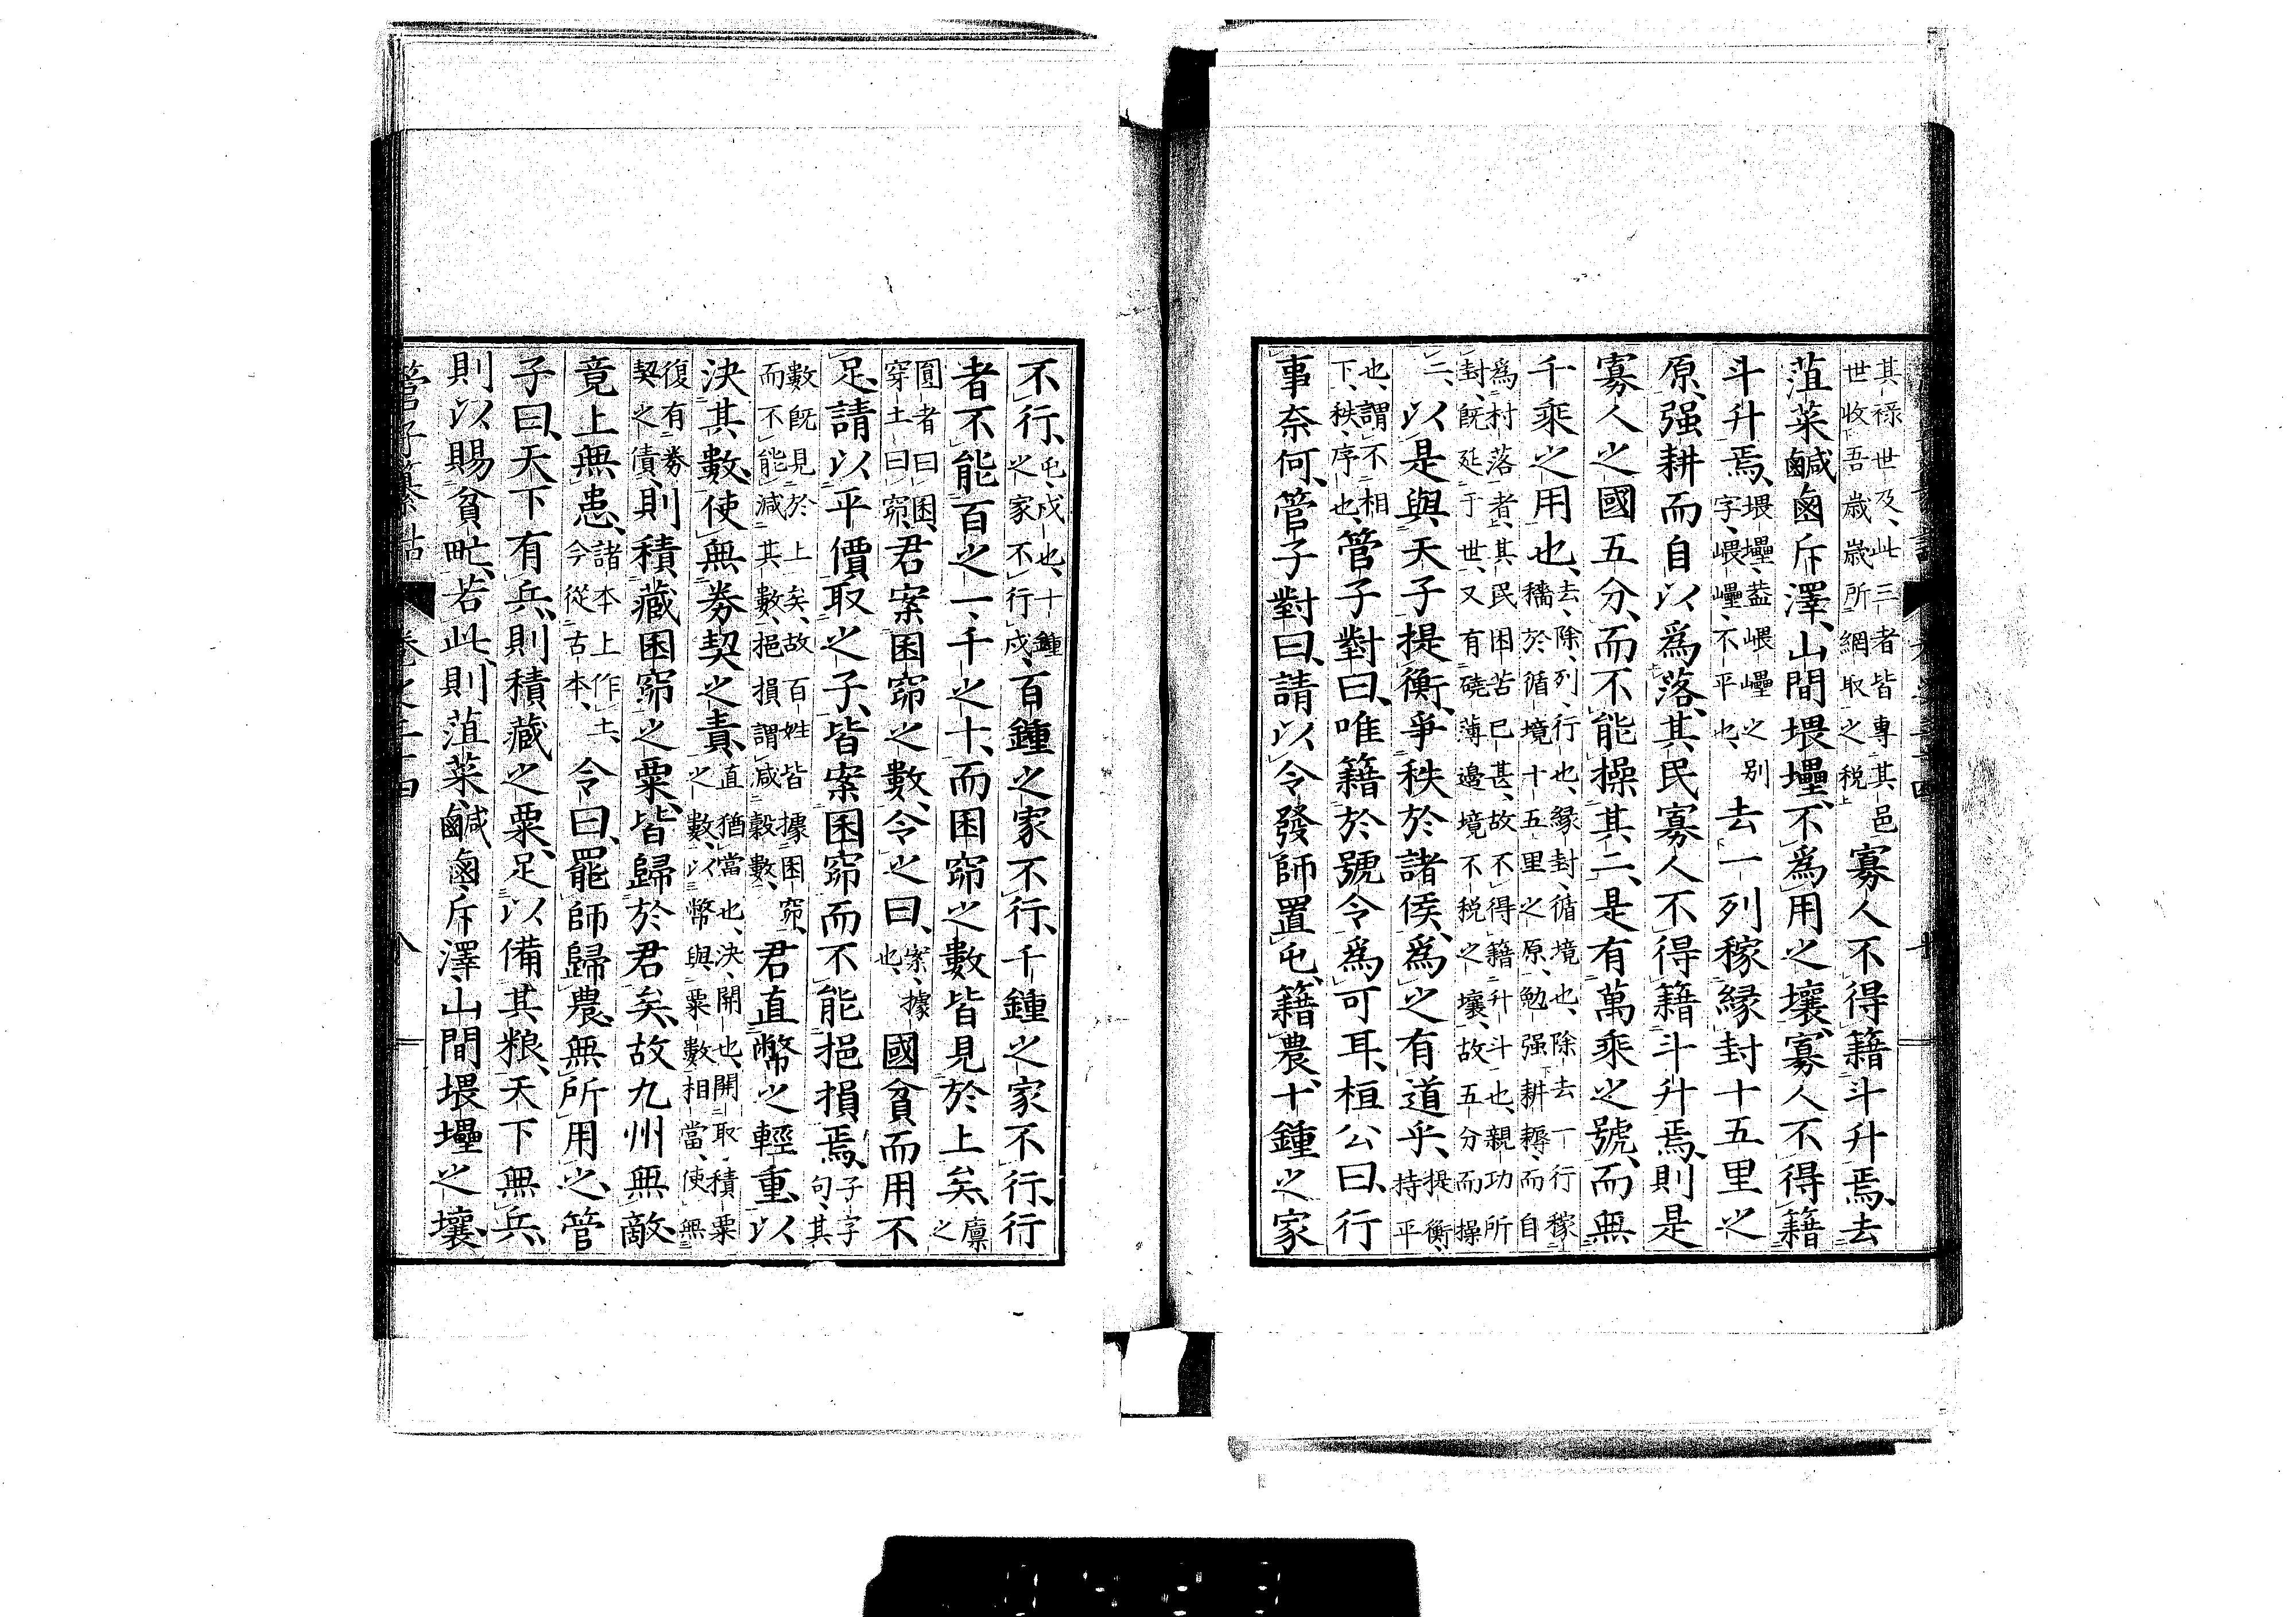 其祿世及、此三者皆專其邑
世收吾歲歲所網取之稅
寡人不得籍斗升焉、去
菹菜鹹鹵斥澤、山間堁壘、不爲用之壤、寡人不得籍
斗升焉、
堁壘、蓋嵔壘之別
字、嵔壘、不平也、
去一列稼、緣封十五里之
原、强耕而自以爲落、其民寡人不得籍斗升焉、則是
寡人之國五分、而不能操其二、是有萬乘之號、而無
千乘之用也、
去、除、列、行也、緣封、循境也、除去一行稼
穡於循境十五里之原、勉强耕耨、而自
爲村落者、其民困苦已甚、故不得籍升斗也、親功所
封、既延于世、又有磽薄邊境不稅之壤、故五分而操
二、以是與天子提衡、爭秩於諸侯、爲之有道乎、
提衡、
持平
也、謂不相
下、秩、序也、
管子對曰、唯籍於號令爲可耳、桓公曰、行
事奈何、管子對曰、請以令發師置屯、籍農、十鍾之家
不行、
屯、戍也、十鍾
之家不行戍、
百鍾之家不行、千鍾之家不行、行
者不能百之一、千之十、而囷窌之數皆見於上矣、
廩之
圓者曰囷、
穿土曰窌、
君案囷窌之數、令之曰、
案、據
也、
國貧而用不
足、請以平價取之子、皆案囷窌而不能挹損焉、
子字
句、其
數既見於上矣、故百姓皆據囷窌、
而不能減其數、挹損謂減穀數、
君直幣之輕重、以
決其數、使無券契之責、
直猶當也、決、開也、開取積粟
之數、以幣與粟數相當、使無
復有券
契之債、
則積藏囷窌之粟、皆歸於君矣、故九州無敵、
竟上無患、
諸本上作土、
今從古本、
令曰、罷師歸農、無所用之、管
子曰、天下有兵、則積藏之粟、足以備其粮、天下無兵、
則以賜貧甿、若此、則菹菜、鹹鹵、斥澤、山間堁壘之壤、